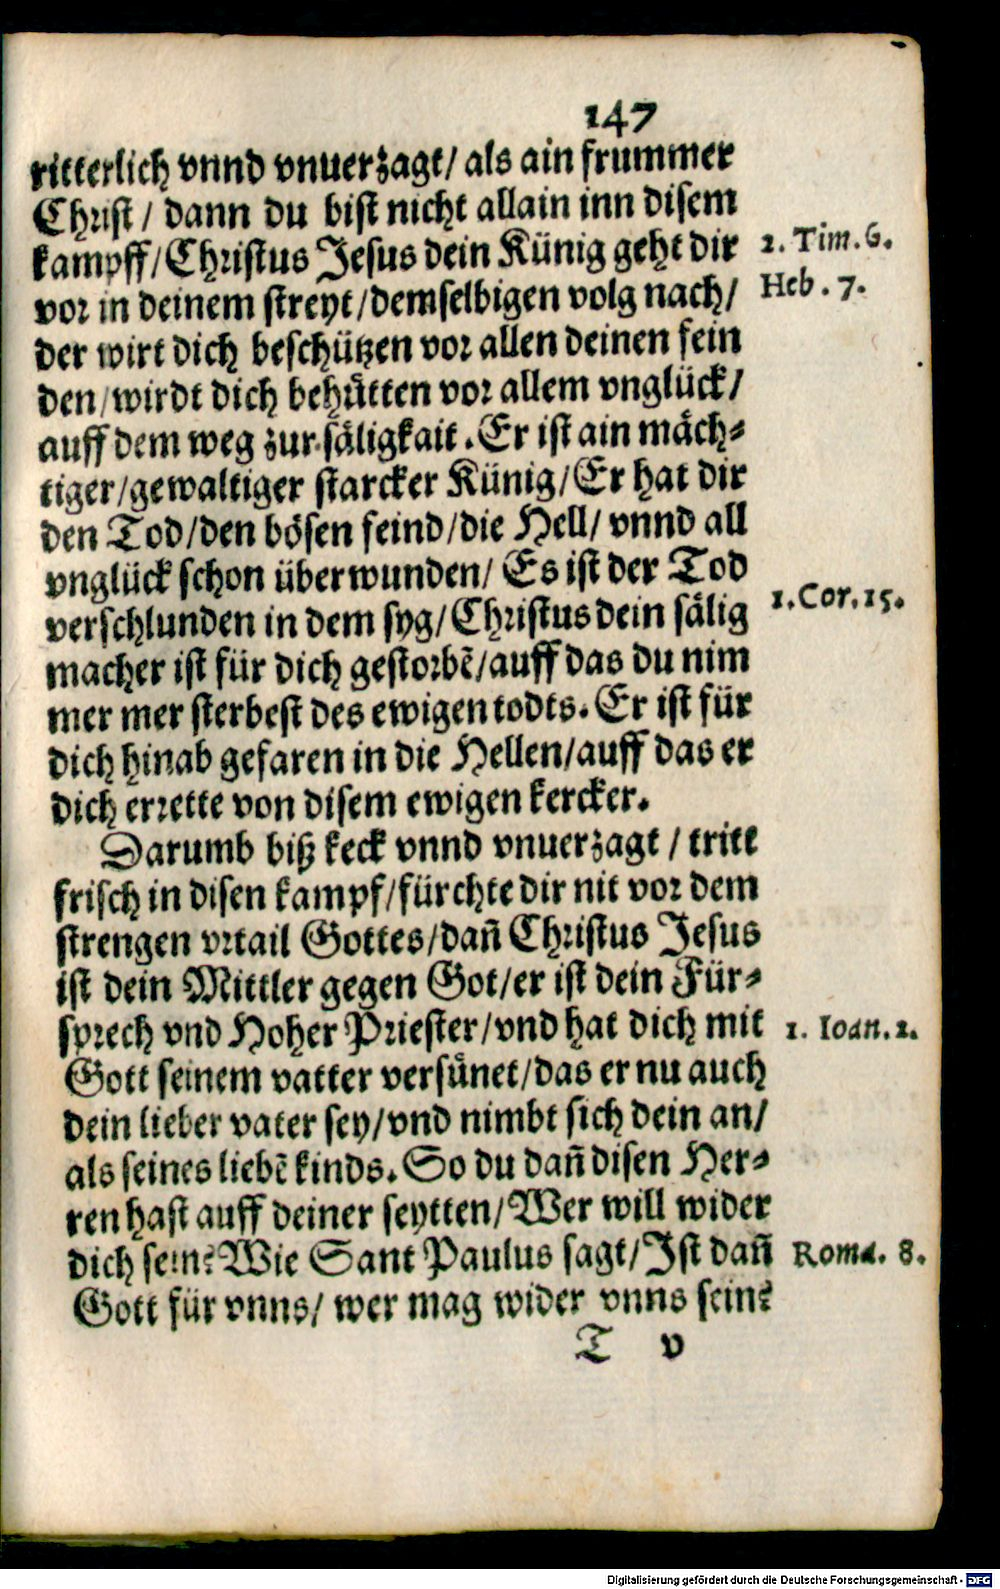 147
ritterlich vnnd vnuerzagt/ als ain frummer
Christ / dann du bist nicht allain inn disem
kampff/Christus Jesus dein Künig geht dir
1. Tim. 6.
vor in deinem streyt/demselbigen volg nach/
Heb. 7.
der wirt dich beschützen vor allen deinen fein
den/wirdt dich behütten vor allem vnglück/
auff dem weg zur säligkait. Er ist ain mäch⸗
tiger/gewaltiger starcker Künig/Er hat dir
den Tod/den bösen feind/die Hell/ vnnd all
vnglück schon überwunden/ Es ist der Tod
verschlunden in dem syg/Christus dein sälig
1. Cor. 15.
macher ist für dich gestorbē/auff das du nim
mer mer sterbest des ewigen todts. Er ist für
dich hinab gefaren in die Hellen/auff das er
dich errette von disem ewigen kercker.
Darumb biß keck vnnd vnuerzagt / tritt
frisch in disen kampf/fürchte dir nit vor dem
strengen vrtail Gottes/dañ Christus Jesus
ist dein Mittler gegen Got/er ist dein Für⸗
sprech vnd Hoher Priester/vnd hat dich mit
1. Ioan. 2.
Gott seinem vatter versünet/das er nu auch
dein lieber vater sey/vnd nimbt sich dein an/
als seines liebē kinds. So du dañ disen Her⸗
ren hast auff deiner seytten/Wer will wider
dich sein? Wie Sant Paulus sagt/Ist dañ
Roma. 8.
Gott für vnns/ wer mag wider vnns sein?
T v
Digitalisierung gefördert durch die Deutsche Forschungsgemeinschaft - DFG